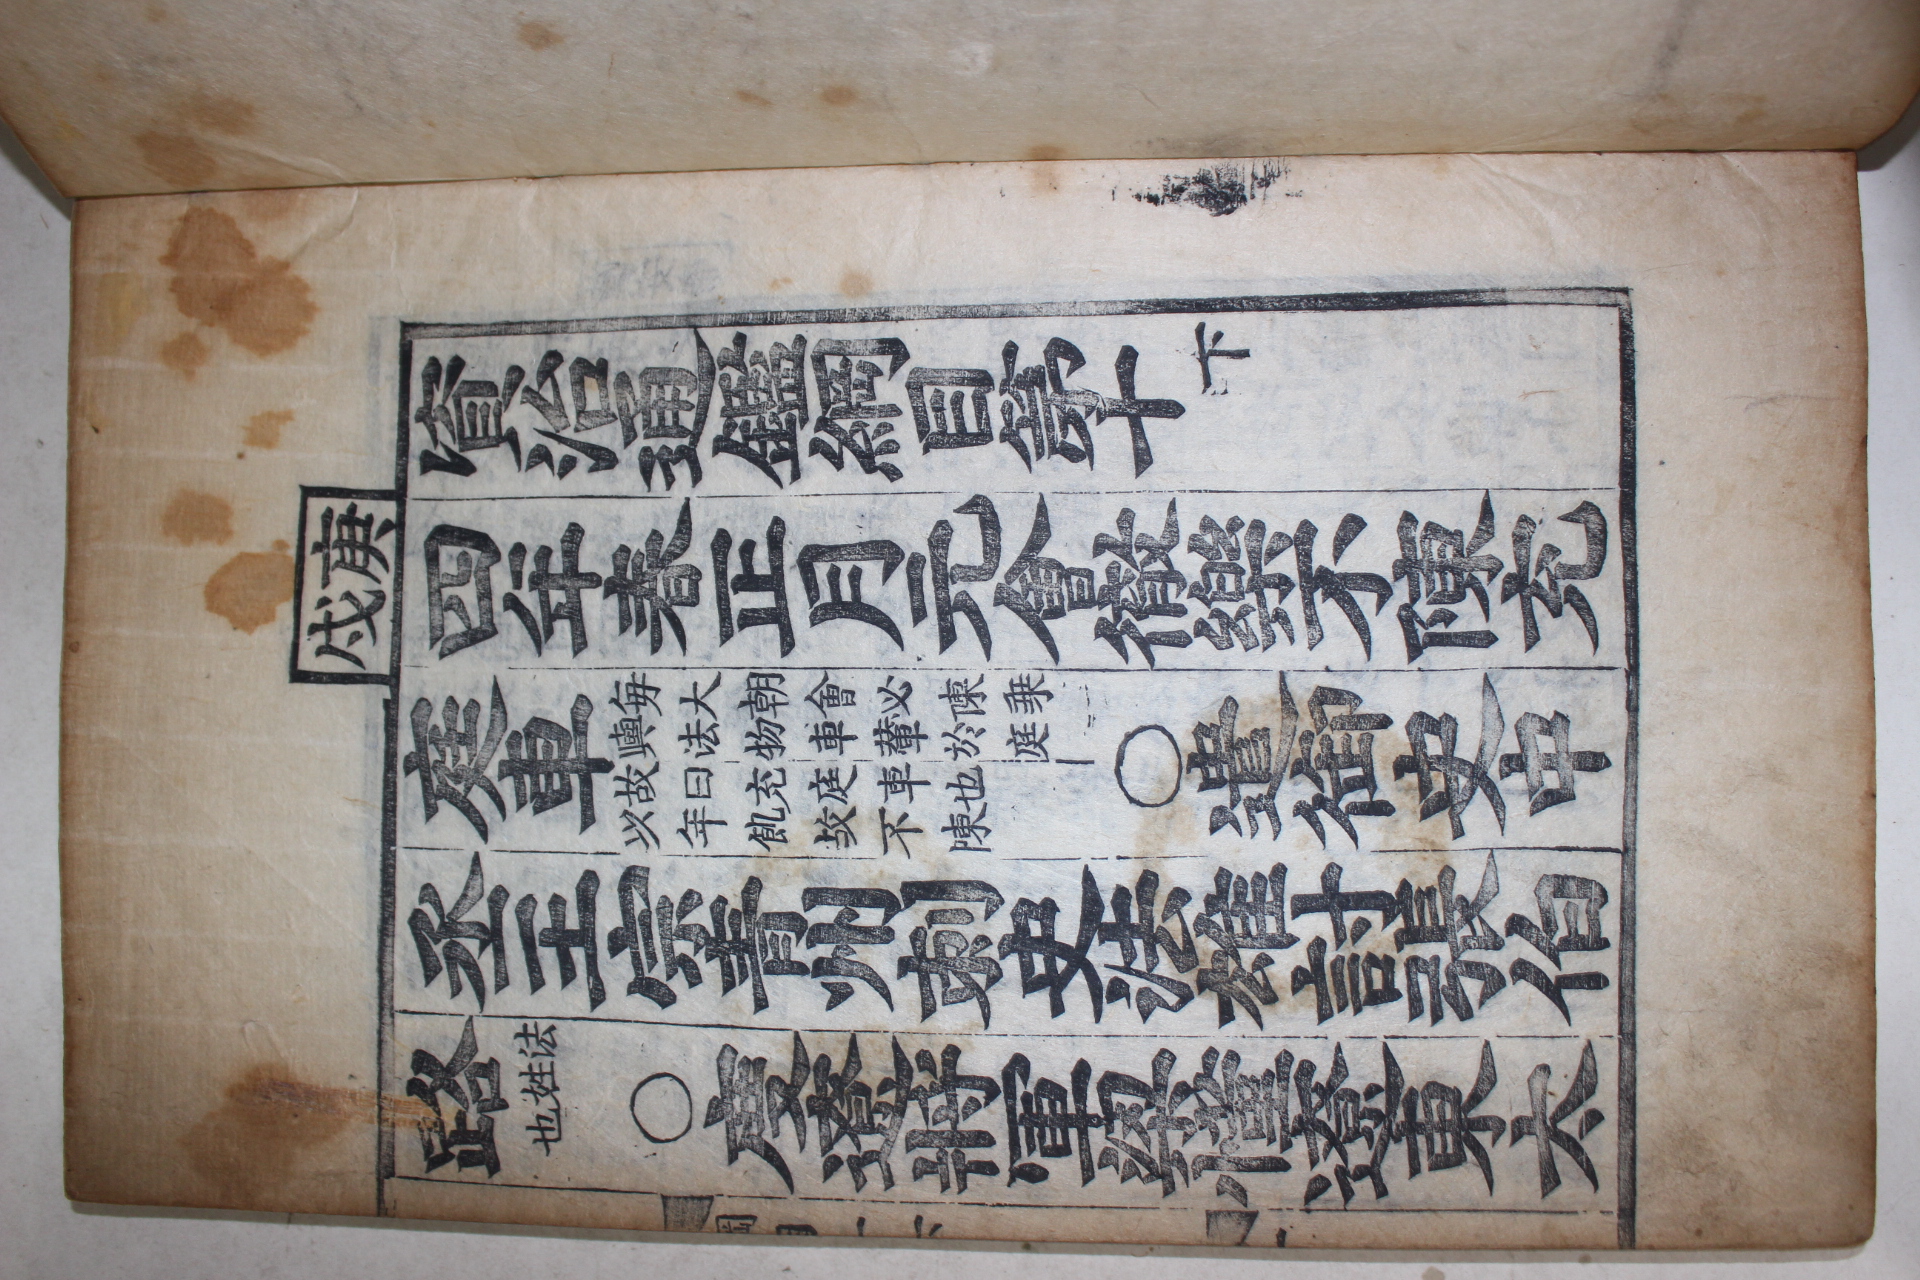 資治通鑑綱目第十下
庚戌
四年春正月元會徹樂不陳充
庭車每大朝會必陳乗
輿法物車輦於庭
故曰充庭車也
以年飢故不陳
○遣御史中
丞王宗青州刺史法雄討張伯
路法姓也○度遼將軍梁慬遼東太